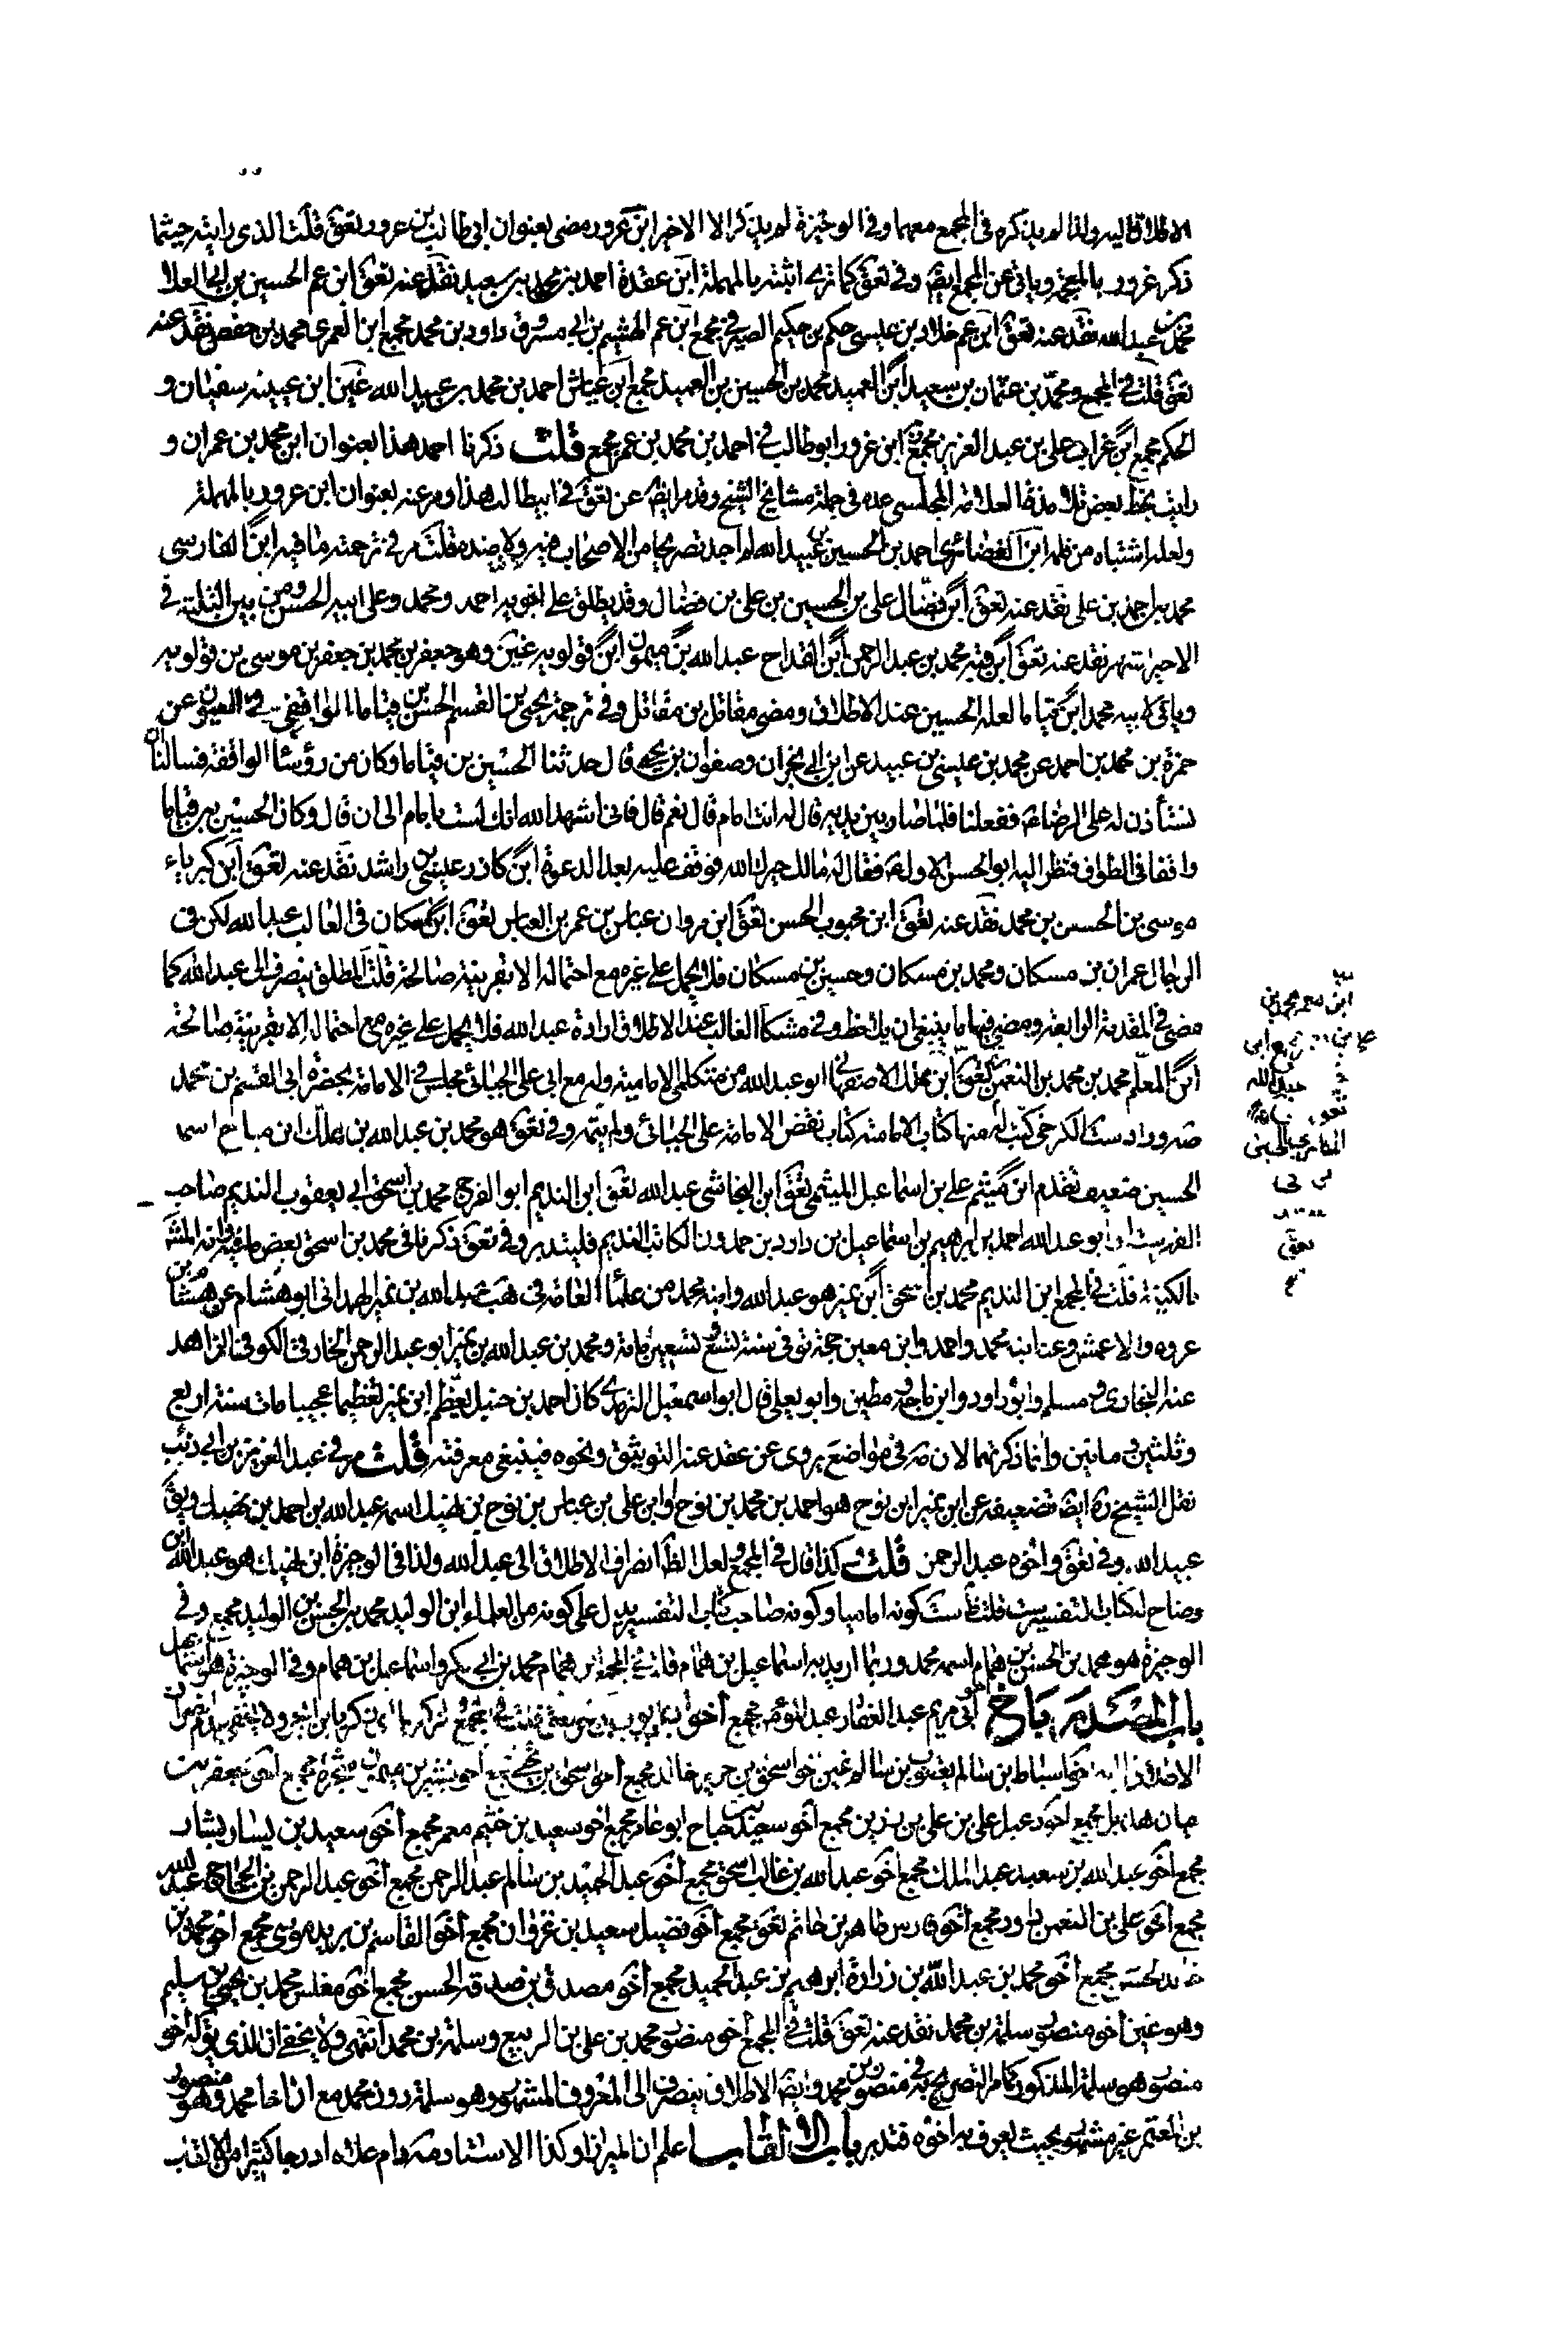 الاطلاق اليه ولذا لم يذكره في المجمع معهما وفي الوجيزة لم يذكر الا الاخير ابن عزور مضى بعنوان ابي طالب بن عزور تعق قلت الذي رايته حيثما
ذكر غرور بالمعجمة وياتي عن المجمع ايضا وفي تعق كما ترى اثبته بالمهملة ابن عقدة احمد بن محمد بن سعيد نقد عنه تعق ابن عم الحسين بن ابي العلا
محمد بن عبد الله نقد عنه تعق ابن عم خلاد بن عيسى حكم بن حكيم الصيرفي مجمع ابن عم الهشيم بن ابي مسروق داود بن محمد مجمع ابن العمري محمد بن حفص نقد عنه
تعق قلت في المجمع ومحمد بن عثمان بن سعيد ابن العميد محمد بن الحسين بن العميد مجمع ابن عياش احمد بن محمد بن عبيد الله غين ابن عيينه سفيان و
الحكم مجمع ابن غراب علي بن عبد العزيز مجمع ابن غرور ابو طالب في احمد بن محمد بن عمر مجمع قلت ذكرنا احمد هذا بعنوان ابن محمد بن عمران و
رايت بخط بعض تلامذة العلامة المجلسي عده في جملة مشايخ الشيخ وقدم ايضا عن تعق في ابي طالب هذا ومر عنه بعنوان ابن عزور بالمهملة
ولعله اشتباه من قلمه ابن الغضائري احمد بن الحسين بن عبيد الله لم اجد تصريحا من الاصحاب فيه ولا ضده قلت مر في ترجمته ما فيه ابن الفارسي
محمد بن احمد بن علي نقد عنه تعق ابن فضال علي بن الحسين بن علي بن فضال وقد يطلق على اخويه احمد ومحمد وعلى ابيه الحسن ومن بين الثلثة في
الاخير اشهر نقد عنه تعق ابن قبة محمد بن عبد الرحمن ابن القداح عبد الله بن ميمون ابن قولويه غين وهو جعفر بن محمد بن جعفر بن موسى بن قولويه
وياتي لابيه محمد ابن قياما لعله الحسين عند الاطلاق ومضى مقاتل بن مقاتل وفي ترجمة يحيى بن القسم الحسن بن قياما الواقفي في العيون عن
حمزة بن محمد بن احمد عن محمد بن عيسى بن عبيد عن ابن ابي نجران وصفوان بن يحيى قال حدثنا الحسين بن قياما وكان من رؤسا الواقفة فسالنا ان
نستأذن له على الرضا ع ففعلنا فلما صار بين يديه قال له انت امام قال نعم قال فاني اشهد الله انك لست بامام الى ان قال وكان الحسين بن قياما
واقفا في الطواف فنظر اليه ابو الحسن الاول ع فقال له مالك حيرك الله فوقف عليه بعد الدعوة ابن كازر عيسى بن راشد نقد عنه تعق ابن كبرياء
موسى بن الحسن بن محمد نقد عنه تعق ابن محبوب الحسن تعق ابن مروان عباس بن عمر بن العباس تعق ابن مسكان في الغالب عبد الله لكن في
الرجال عمران بن مسكان ومحمد بن مسكان وحسين بن مسكان فلا يحمل على غيره مع احتماله الا بقرينة صالحة قلت المطلق ينصرف الى عبد الله كما
مضى في المقدمة الرابعة ومضى فيها ما ينبغي ان يلاحظ وفي مشكا الغالب عند الاطلاق ارادة عبد الله فلا يحمل على غيره مع احتماله الا بقرينة صالحة
ابن المعلم محمد بن محمد بن النعمن تعق ابن مملك الاصفهاني ابو عبد الله من متكلمي الامامية وله مع ابي علي الجبائي مجلس في الامامة بحضرة ابي القسم بن محمد
الكرخي كتب له منها كتاب الامامة كتاب نقض الامامة على الجبائي ولم يتمه وفي تعق هو محمد بن عبد الله بن مملك ابن مياح اسمه
الحسين ضعيف تقدم ابن ميثم علي بن اسماعيل الميثمي تعق ابن النجاشي عبد الله تعق ابن النديم ابو الفرج محمد بن اسحق ابي يعقوب النديم صاحب
الفهرست او ابو عبد الله احمد بن ابرهيم بن اسماعيل بن داود بن حمدون الكاتب النديم فليتدبر وفي تعق ذكرنا في محمد بن اسحق بعض ما فيه وانه المشهر
بالكنية قلت في المجمع ابن النديم محمد بن اسحق ابن نمير هو عبد الله وابنه محمد من علما العامة في هب عبد الله بن نمير الهمداني ابو هشام عن هشام بن
عروه والاعمش وعنه ابنه محمد واحمد وابن معين حجة توفي سنة تسع وتسعين ومائة ومحمد بن عبد الله بن نمير ابو عبد الرحمن الخارفي الكوفي الزاهد
عنه البخاري ومسلم وابو داود وابن ماجة ومطين وابو يعلى قال ابو اسمعيل الترمذي كان احمد بن حنبل يعظم ابن نمير تعظيما عجيبا مات سنة اربع
وثلثين وماتين وانما ذكرتهما لان مه في مواضع يروي عن عقد عنه التوثيق ونحوه فينبغي معرفته قلت مر في عبد العزيز بن ابي ذئب
نقل الشيخ ره ايضا تضعيفه عن ابن نمير ابن نوح هو احمد بن محمد بن نوح او ابن علي بن عباس بن نوح بن نهيك اسمه عبد الله بن احمد بن نهيك ويق
عبيد الله وفي تعق واخوه عبد الرحمن قلت كذا قال في المجمع ولعل الظ انصراف الاطلاق الى عبد الله ولذا في الوجيزة ابن نهيك هو عبد الله ابن
وضاح له كتاب التفسير ست قلت ظ ست كونه اماميا وكونه صاحب كتاب التفسير يدل على كونه من العلماء ابن الوليد محمد بن الحسن بن الوليد مجمع وفي
الوجيزة هو محمد بن الحسن بن همام اسمه محمد وربما اريد به اسماعيل بن همام قلت في المجمع ابن همام محمد بن ابي بكر واسماعيل بن همام وفي الوجيزة هو اسماعيل
باب المصدر باخ هو ابي مريم عبد الغفار عبد المؤمن مجمع
الاطلاق اليه اخو اسباط بن سالم يعقوب بن سالم غين اخو اسحق بن جرير خالد مجمع
مجمع اخو دعبل علي بن علي بن رزين مجمع اخو سعيد بياع ابو عامر مجمع اخو سعيد بن خثيم معمر مجمع اخو سعيد بن يسار بشار
مجمع اخو عبد الله بن سعيد عبد الملك مجمع اخو عبد الله بن غالب اسحق مجمع اخو عبد الحميد بن سالم عبد الرحمن مجمع اخو عبد الرحمن بن الحجاج عبد الله
مجمع اخو علي بن النعمن داود مجمع اخو فارس طاهر بن حاتم تعق مجمع اخو فضيل سعيد بن غزوان مجمع اخو القاسم بن بريد موسى مجمع اخو محمد بن
خالد الحسن مجمع اخو محمد بن عبد الله بن زرارة ابرهيم بن عبد الحميد مجمع اخو مصدق بن صدقة الحسن مجمع اخو مغلس محمد بن يحيى بن سليم
وهو غين اخو منصور سلمة بن محمد نقد عنه تعق قلت في المجمع اخو منصور محمد بن علي بن الربيع وسلمة بن محمد انتهى ولا يخفى ان الذي يق له اخو
منصور هو سلمة المذكور كما مر التصريح به في منصور بن محمد وايضا الاطلاق ينصرف الى المعروف المشهور وهو سلمة دون محمد مع ان اخا محمد وهو منصور
بن المعتمر غير مشهور بحيث يعرف به اخوه فتدبر باب الالقاب اعلم ان الميرزا وكذا الاستاد مه دام علاه ادرجا كثيرا من الالقاب
ابن معمر محمد بن